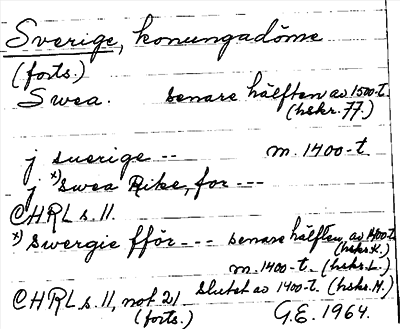 Sverige, konungadöme
(forts.)
Swea. senare hälften av 1500-t.
(hskr. 77.)
j suerige -- m. 1400-t.
j x) swea Rike, for ---
CHRL s. 11.
x) Swergie fför --- senare hälften av 1400-t.
(hskr. K.)
m. 1400-t. (hskr. L.)
slutet av 1400-t. (hskr. M.)
CHRL s. 11, not 21
(forts.) G.E. 1964.